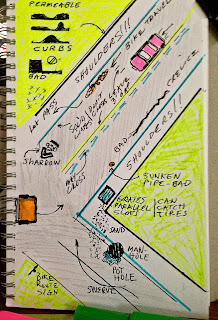 PERMEABLE
CURBS
BAD
SHOULDERS!!!
BIKE TRAVEL
SHARROW
BAD
CREVICE
SHOULDERS!!
SUNKEN
PIPE-BAD
GRATES
PARALLEL
SLOTS
CAN
CATCH
TIRES
SAND
MAN-
HOLE
POT
HOLE
SWERVE
BIKE
ROUTE
SIGN